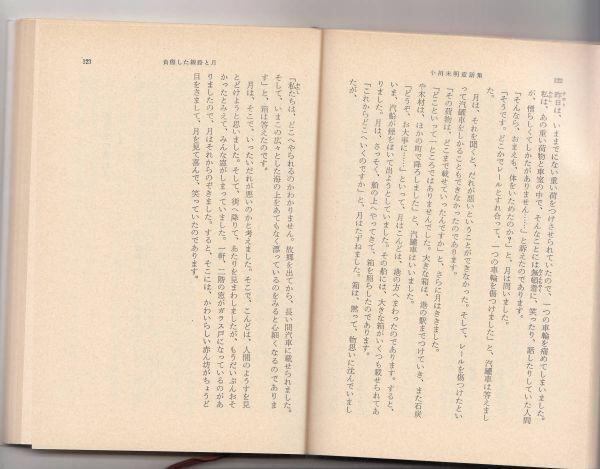 122
小川未明童話集
昨日は、いままでにない重い荷をつけさせられていたので、一つの車輪を痛めてしまいました。
私は、あの重い荷物と車室の中で、そんなことには無頓着に、笑ったり、話したりしていた人間
が、憎らしくてしかたがありません……」と訴えたのであります。
「そんなら、おまえも、体をいためたのか？」と、月は問いました。
「そうです。どこかでレールとすれ合って、一つの車輪を傷つけました」と、汽罐車は答えまし
た。
月は、それを聞くと、だれが悪いということができなかった。そして、レールを傷つけたとい
って汽罐車をしかることもできなかったのであります。
「その荷物は、どこまで載せていったんですか」と、さらに月はききました。
「どこといって、一ところではありませんでした。大きな箱は、港の駅までつけていき、また石炭
や木材は、ほかの町で降ろしました」と、汽罐車はいいました。
「どうぞ、お大事に……」といって、月はこんどは、港の方へまわったのであります。すると、
いま、汽船が煙をはいて出ようとしていました。その船には、大きな箱がいくつも載せられてあ
りました。月は、さっそく、船の上へやってきて、箱を照らしたのであります。
「これからどこへいくのですか」と、月はたずねました。箱は、黙って、物思いに沈んでいまし
負傷した線路と月
123
「私たちは、どこへやられるのかわかりません。故郷を出てから、長い間汽車に載せられました。
そして、いまこの広々とした海の上をあてもなく漂っているのをみると心細くなるのでありま
す」と、箱は答えたのです。
月は、そこで、いったいだれが悪いのかと考えました。そこで、こんどは、人間のようすを見
とどけようと思いました。そして、街へ降りて、あたりを見まわしましたが、もうだいぶんおそ
かったとみえて、みんな窓がしまっていました。一軒、二階の窓がガラス戸になっているのがあ
りましたので、月はそれからのぞきました。すると、そこには、かわいらしい赤ん坊がちょうど
目をさまして、月を見て喜んで、笑っていたのであります。